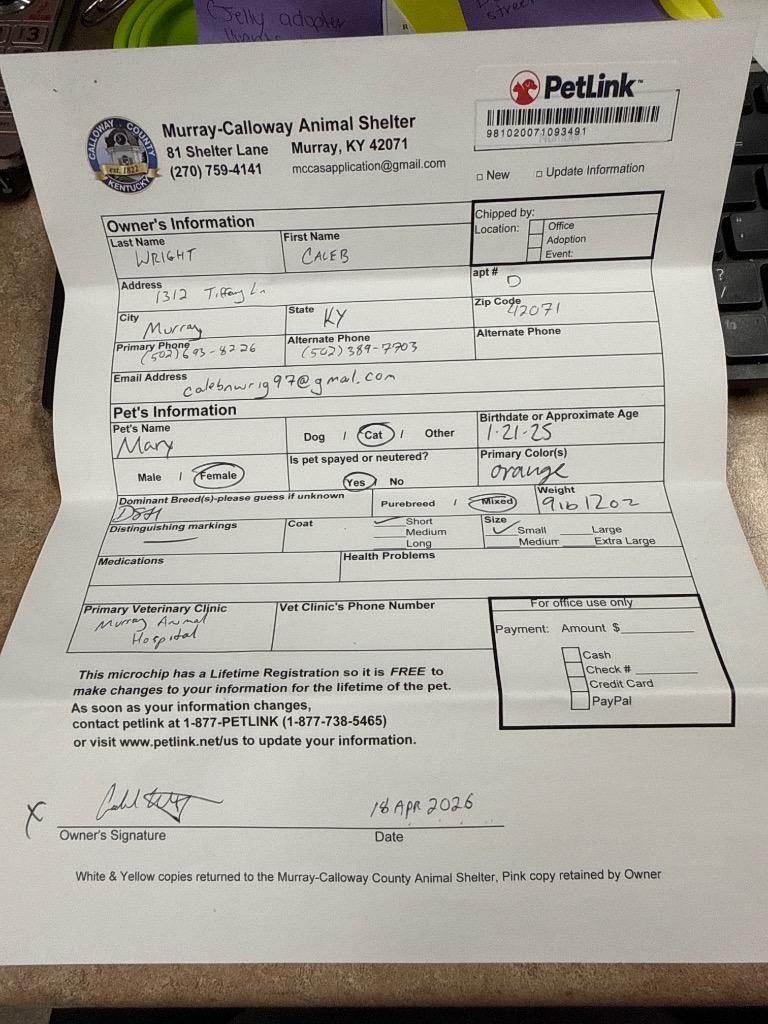 (Jelly adopter
R
13
PetLink™
981020071093491
CALLOWAY COUNTY
EST. 1822
KENTUCKY
Murray-Calloway Animal Shelter
81 Shelter Lane Murray, KY 42071
(270) 759-4141 mccasapplication@gmail.com
New Update Information
Owner's Information
Chipped by:
Location: Office
Adoption
Event:
Last Name First Name
WRIGHT CALEB
Address apt #
1312 Tiffany Ln D
City State Zip Code
Murray KY 42071
Primary Phone Alternate Phone Alternate Phone
(502) 693-8226 (502) 389-7703
Email Address
calebnwrig97@gmal.com
Pet's Information
Pet's Name Dog / Cat / Other Birthdate or Approximate Age
Mary 1-21-25
Male / Female Is pet spayed or neutered? Primary Color(s)
Yes No orange
Dominant Breed(s)-please guess if unknown Purebreed / Mixed Weight
DSH 9lb 12oz
Distinguishing markings Coat Short Size Small Large
Medium Medium Extra Large
Long
Medications Health Problems
Primary Veterinary Clinic Vet Clinic's Phone Number
Murray Animal
Hospital
For office use only
Payment: Amount $
Cash
Check #
Credit Card
PayPal
This microchip has a Lifetime Registration so it is FREE to
make changes to your information for the lifetime of the pet.
As soon as your information changes,
contact petlink at 1-877-PETLINK (1-877-738-5465)
or visit www.petlink.net/us to update your information.
X 18 APR 2026
Owner's Signature Date
White & Yellow copies returned to the Murray-Calloway County Animal Shelter, Pink copy retained by Owner